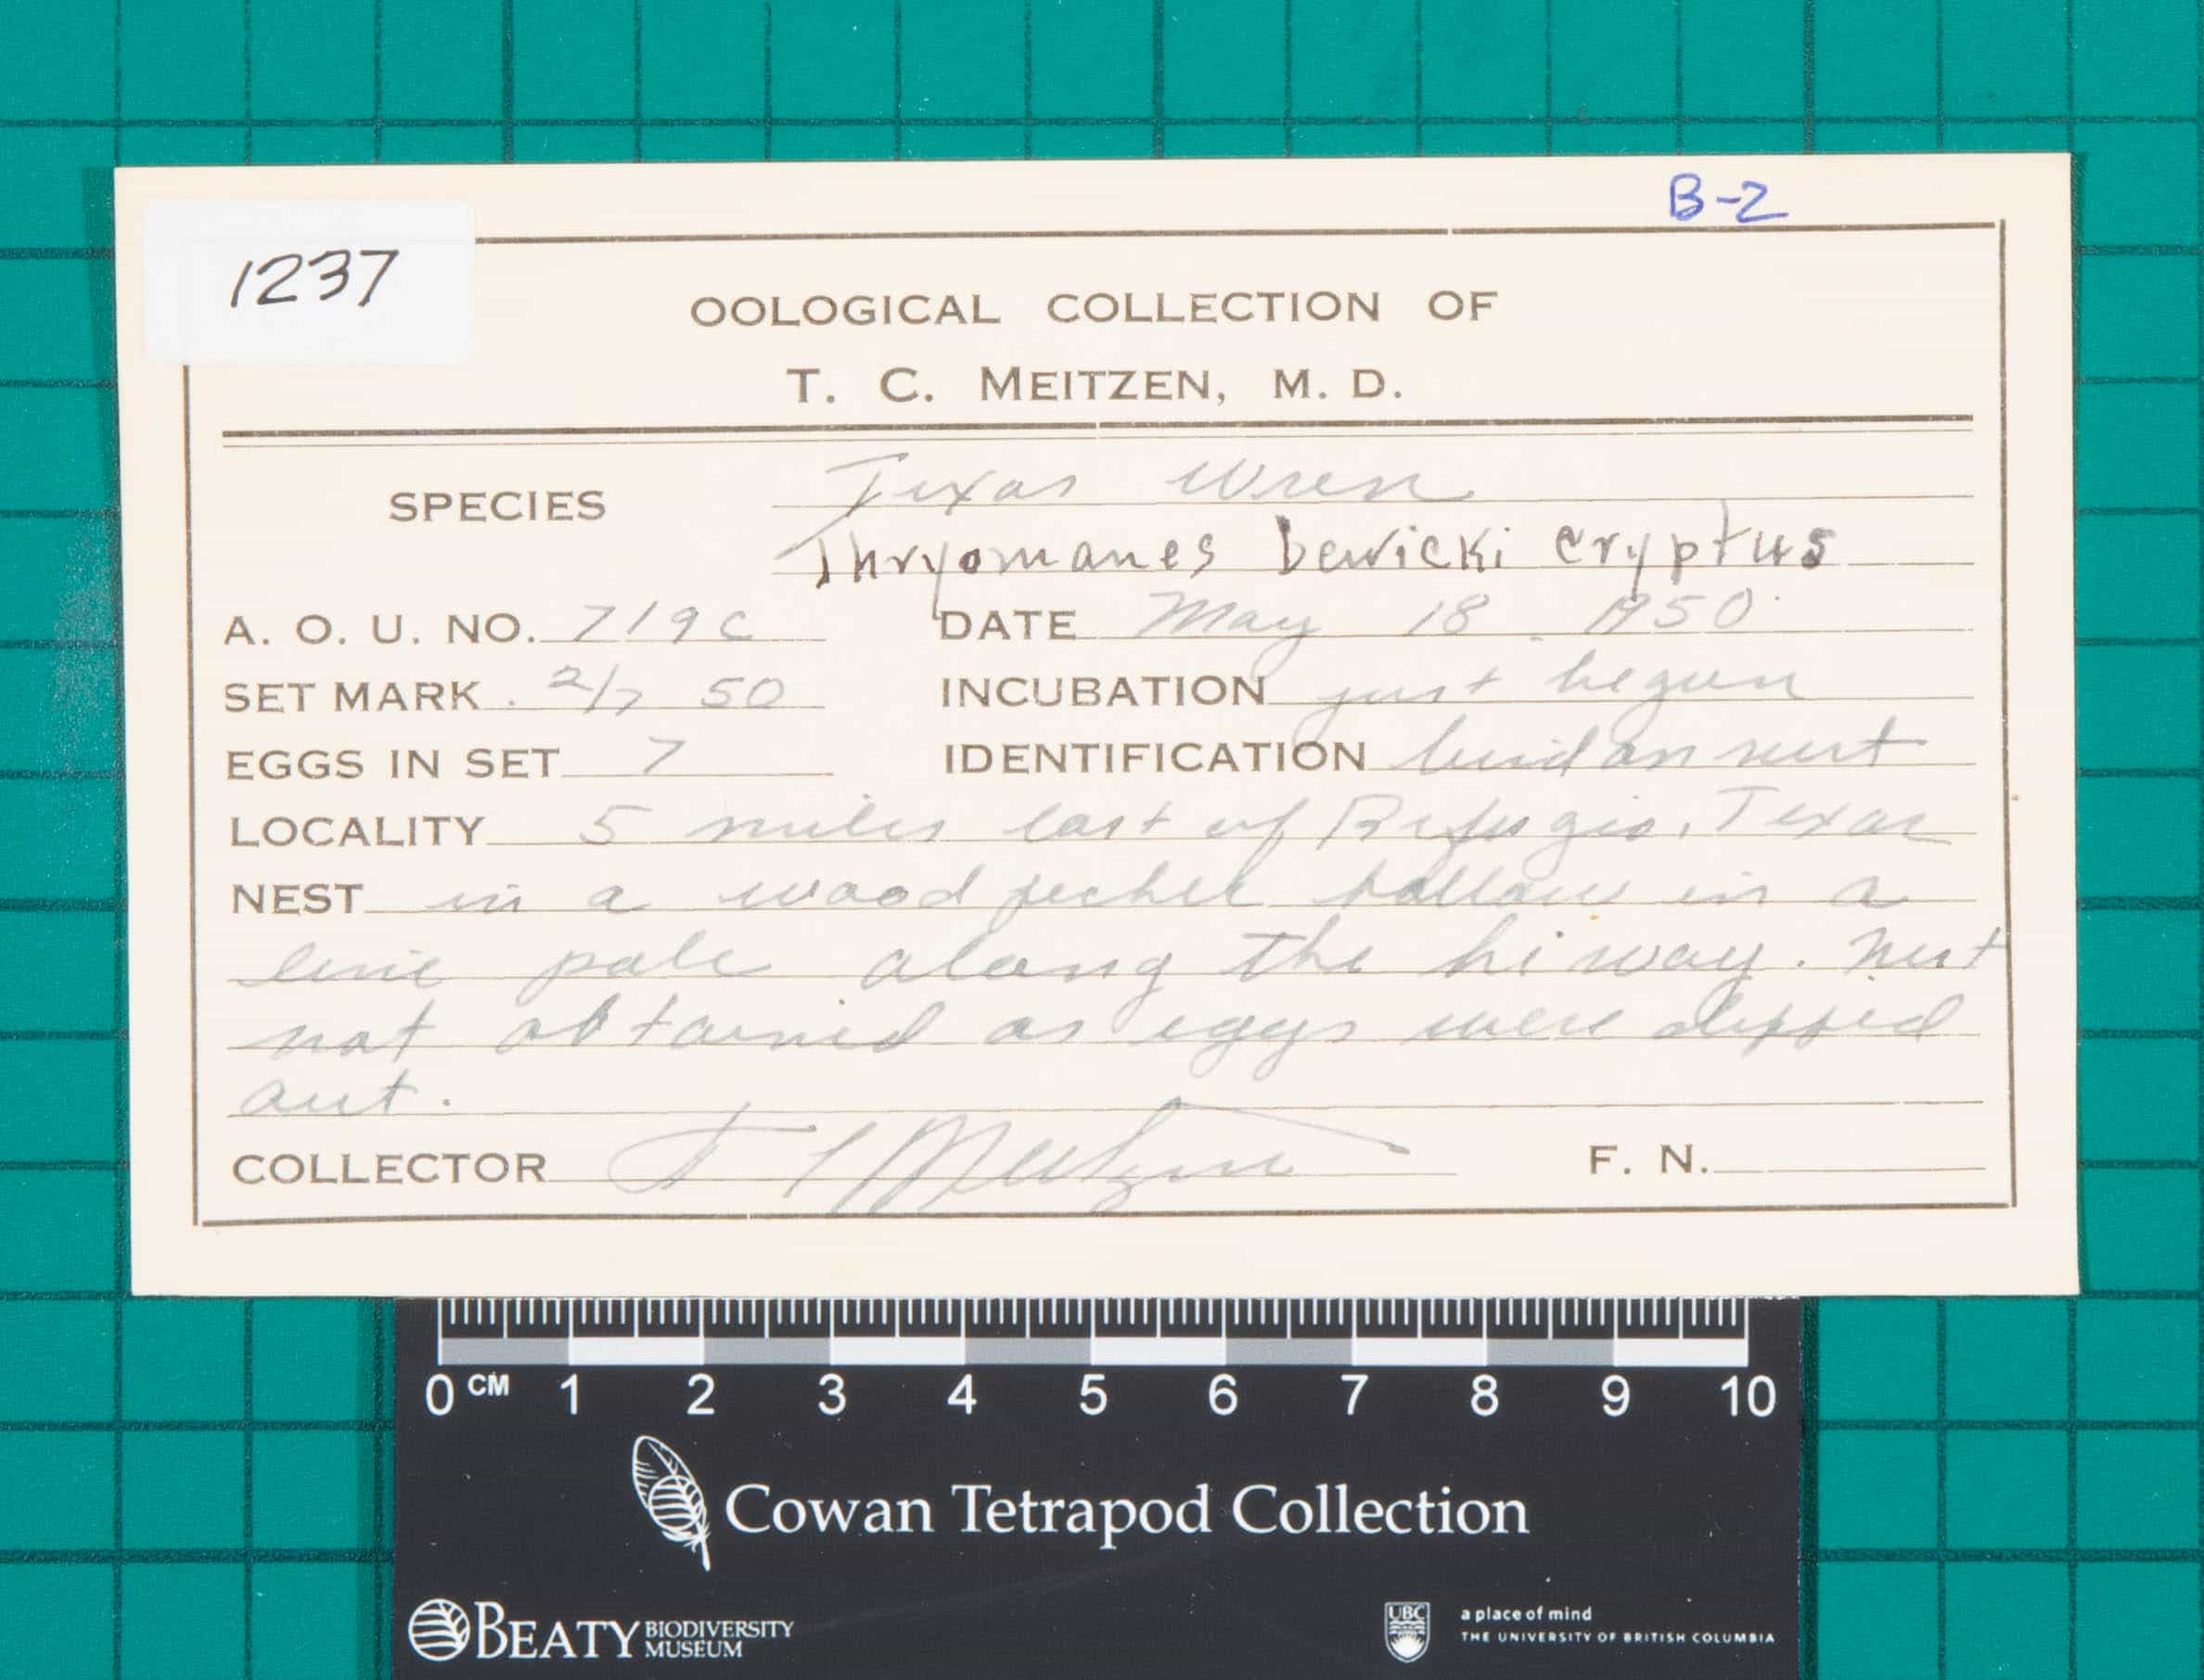 B-2
1237
OOLOGICAL COLLECTION OF
T. C. MEITZEN, M. D.
SPECIES Texas Wren
Thryomanes bewicki cryptus
A. O. U. NO. 719c DATE May 18. 1950.
SET MARK. 2/7 50 INCUBATION just begun
EGGS IN SET 7 IDENTIFICATION bird on nest
LOCALITY 5 miles east of Refugio, Texas
NEST in a woodpecker hollow in a
line pole along the hiway. Nest
not obtained as eggs were dipped
out.
COLLECTOR T C Meitzen F. N.
0 CM 1 2 3 4 5 6 7 8 9 10
Cowan Tetrapod Collection
BEATY BIODIVERSITY MUSEUM
UBC a place of mind
THE UNIVERSITY OF BRITISH COLUMBIA